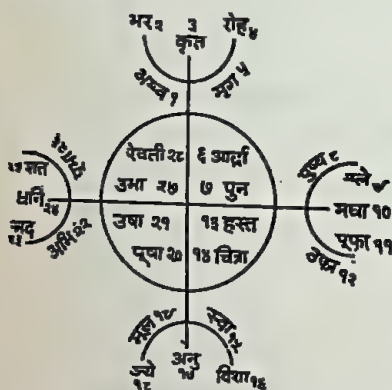 भर २
३
कृत्त
रोह ४
अश्व १
मृग ५
रेवती २८
६ आर्द्रा
उभा २७
७ पुन
उषा २१
१३ हस्त
पूषा २०
१४ चित्रा
पुष्य ८
श्ले ९
मघा १०
पूफा ११
उफा १२
शत
धनि
२४
अभि २२
मूल १९
स्वा १५
ज्ये १८
अनु
१७
विशा १६